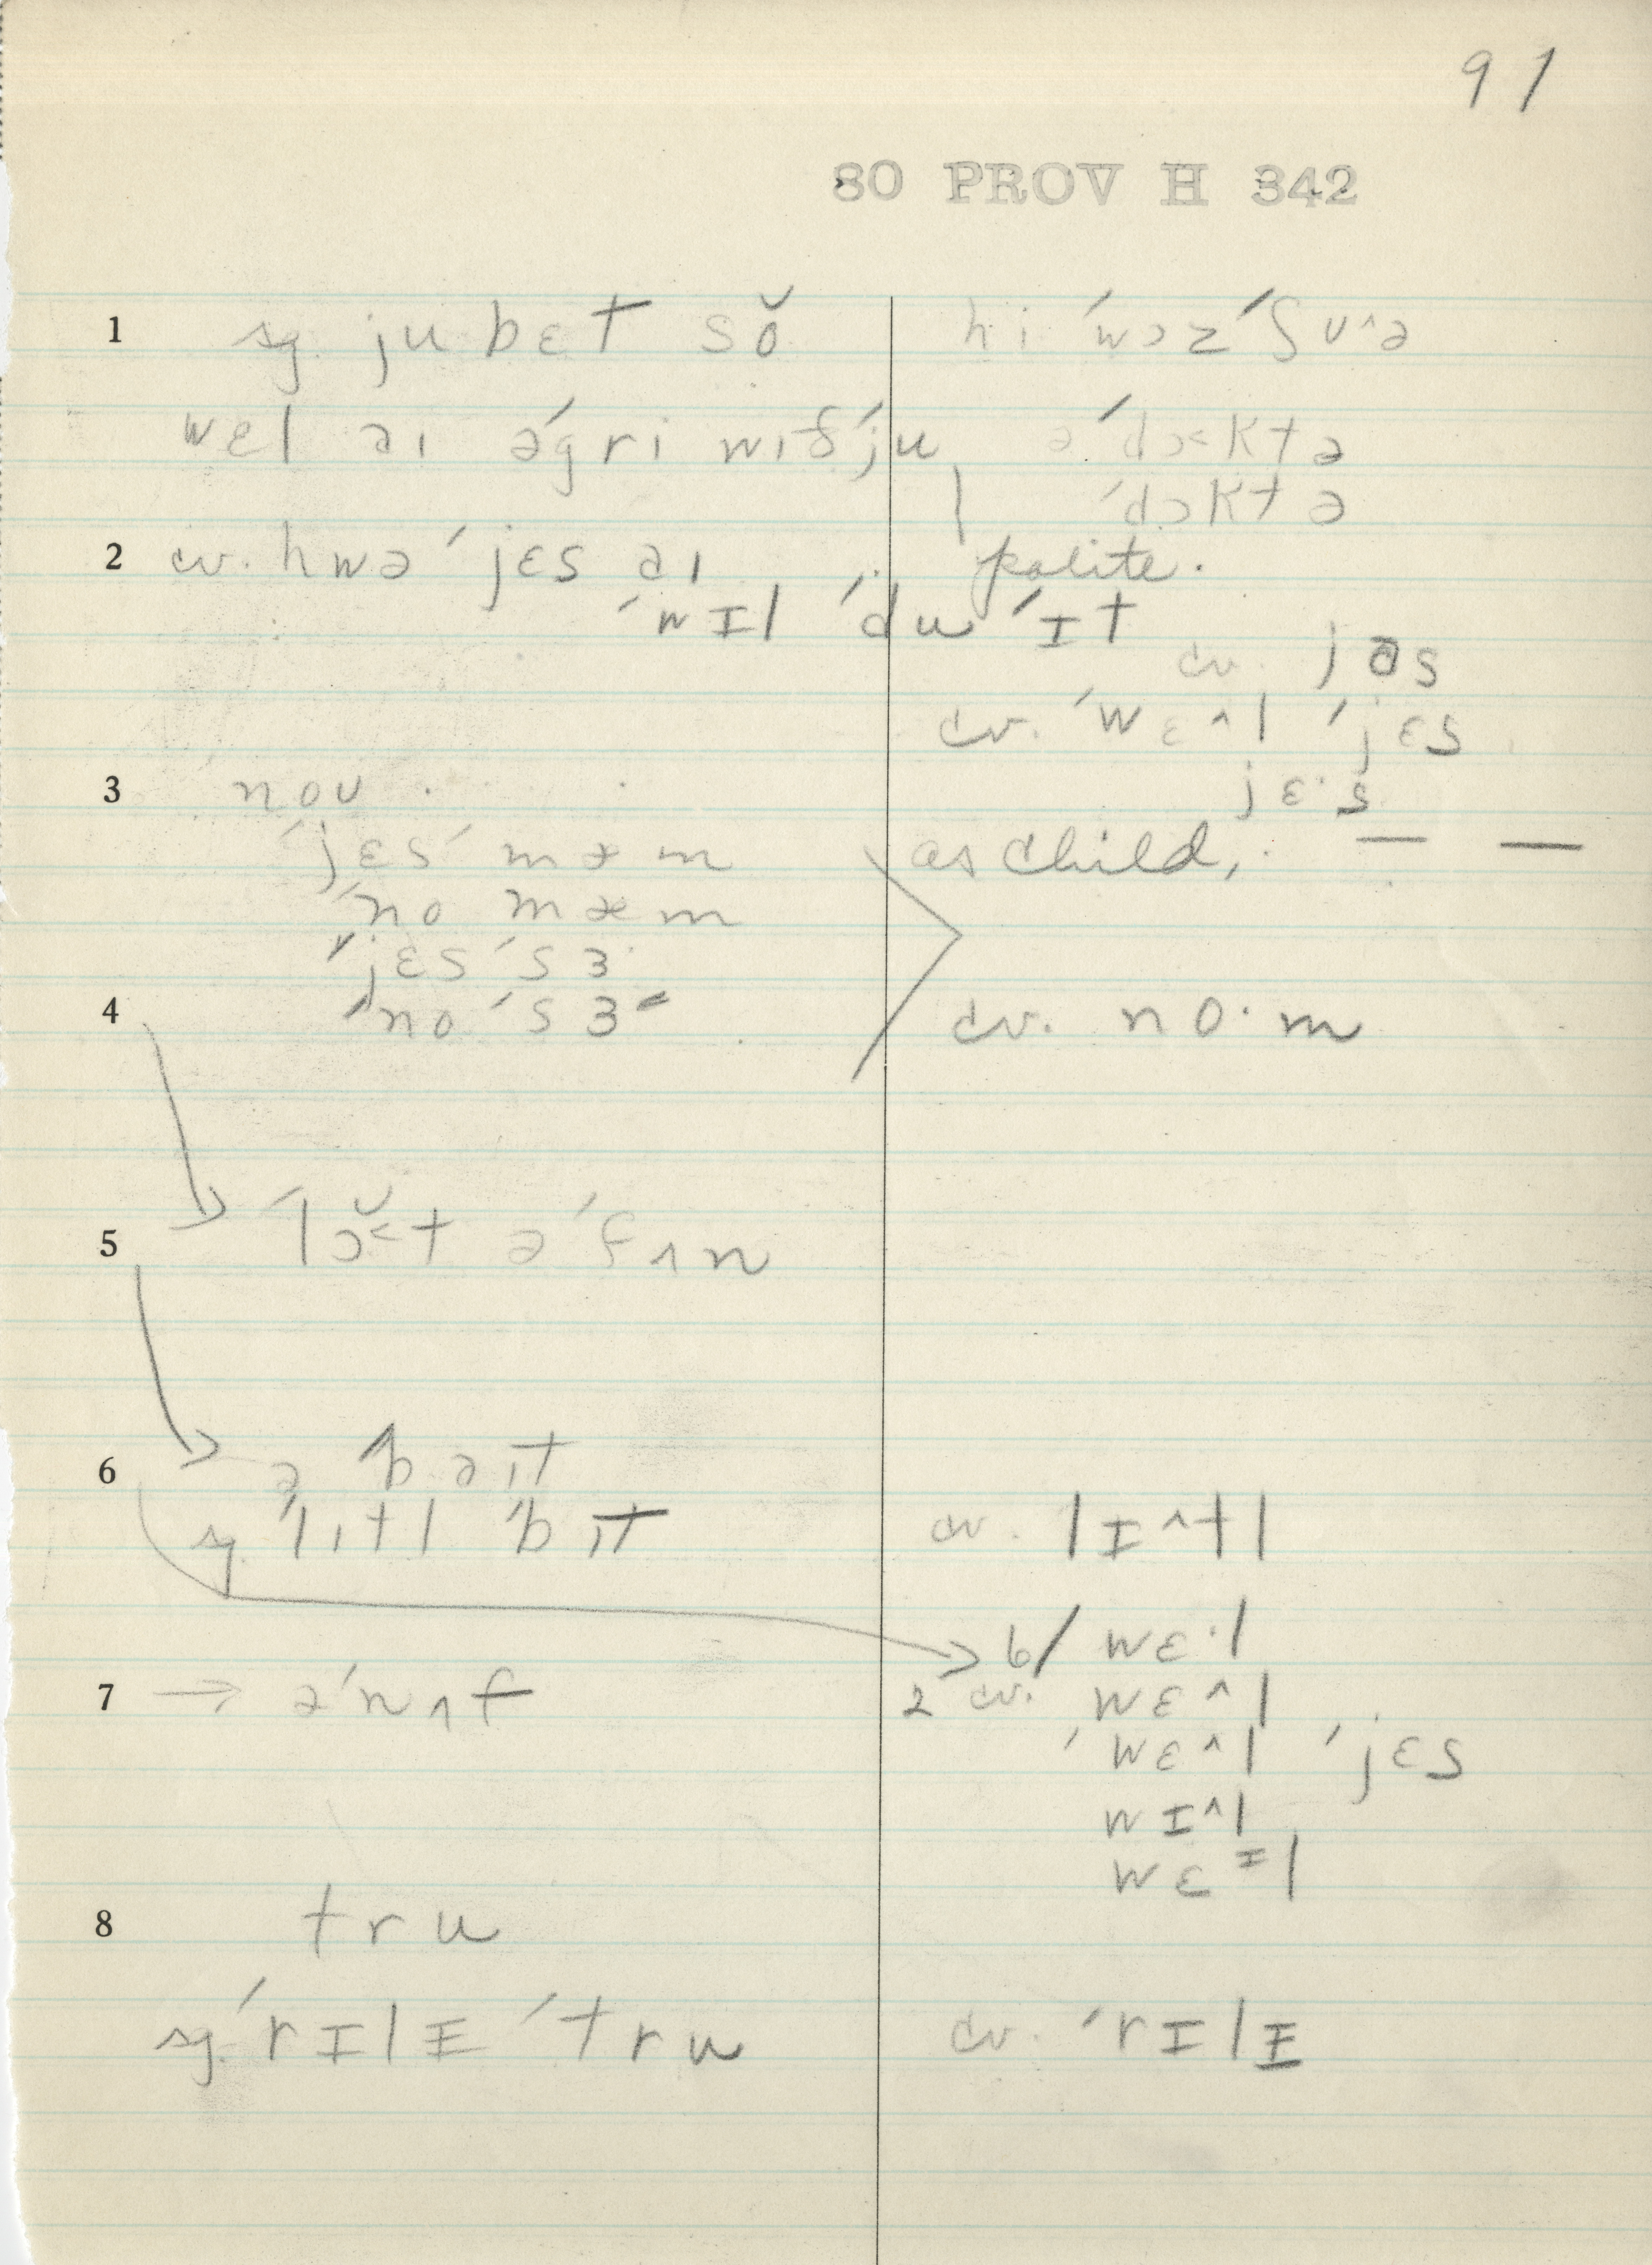 91
80 PROV H 342
1 sg. ju bɛt sŏ
hi ˈwɔz ˈʃʊ^ə
wɛl aɪ əˈgri wɪðˈju
əˈdɔ˂ktə
ˈdɔktə
2 cv. hwə ˈjɛs aɪ
polite.
ˈwɪl ˈdu ˈɪt
cv. jəs
cv. ˈwɛ^l ˈjɛs
jɛ·s
3 noʊ
ˈjɛs mæm
as child, — —
ˈno mæm
ˈjɛs ˈsɜ
4 ˈno ˈsɜ
cv. no·m
5 ˈlɔ̆˂t əˈfʌn
6 ə ˈbaɪt
sg. ˈlɪtl ˈbɪt
cv. lɪ^tl
6/ wɛ·l
7 → əˈnʌf
2 cv. wɛ^l
ˈwɛ^l ˈjɛs
wɪ^l
wɛᶦl
8 tru
sg. ˈrɪlɪ ˈtru
cv. ˈrɪlɪ